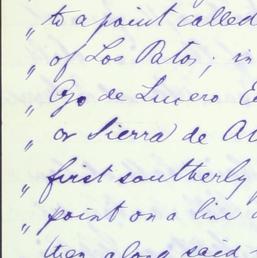 " to a point called
" of Los Patos; in
" Go de Lucero E
" or Sierra de A
" first southerly
" point on a line
then along said